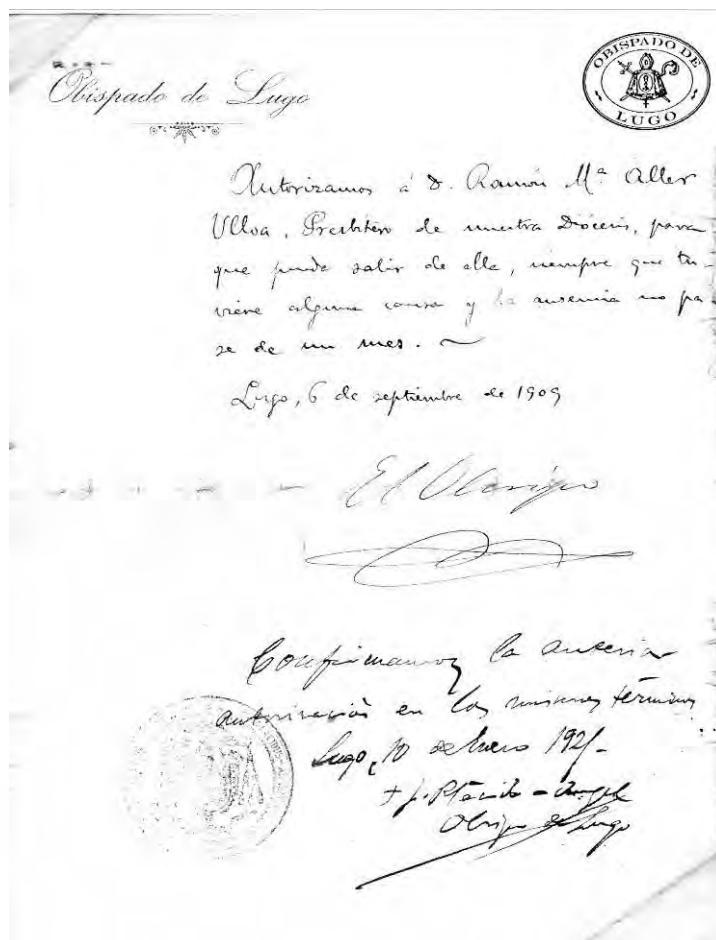 Obispado de Lugo
OBISPADO DE
LUGO
Autorizamos á D. Ramón Mª Aller
Ulloa, Presbítero de nuestra Diócesis, para
que pueda salir de ella, siempre que tu-
viere alguna causa y la ausencia no pa-
se de un mes.
Lugo, 6 de septiembre de 1909
El Obispo
Confirmamos la anterior
autorización en los mismos términos
Lugo, 10 de Enero 192
+ f. Plácido-Angel
Obispo de Lugo